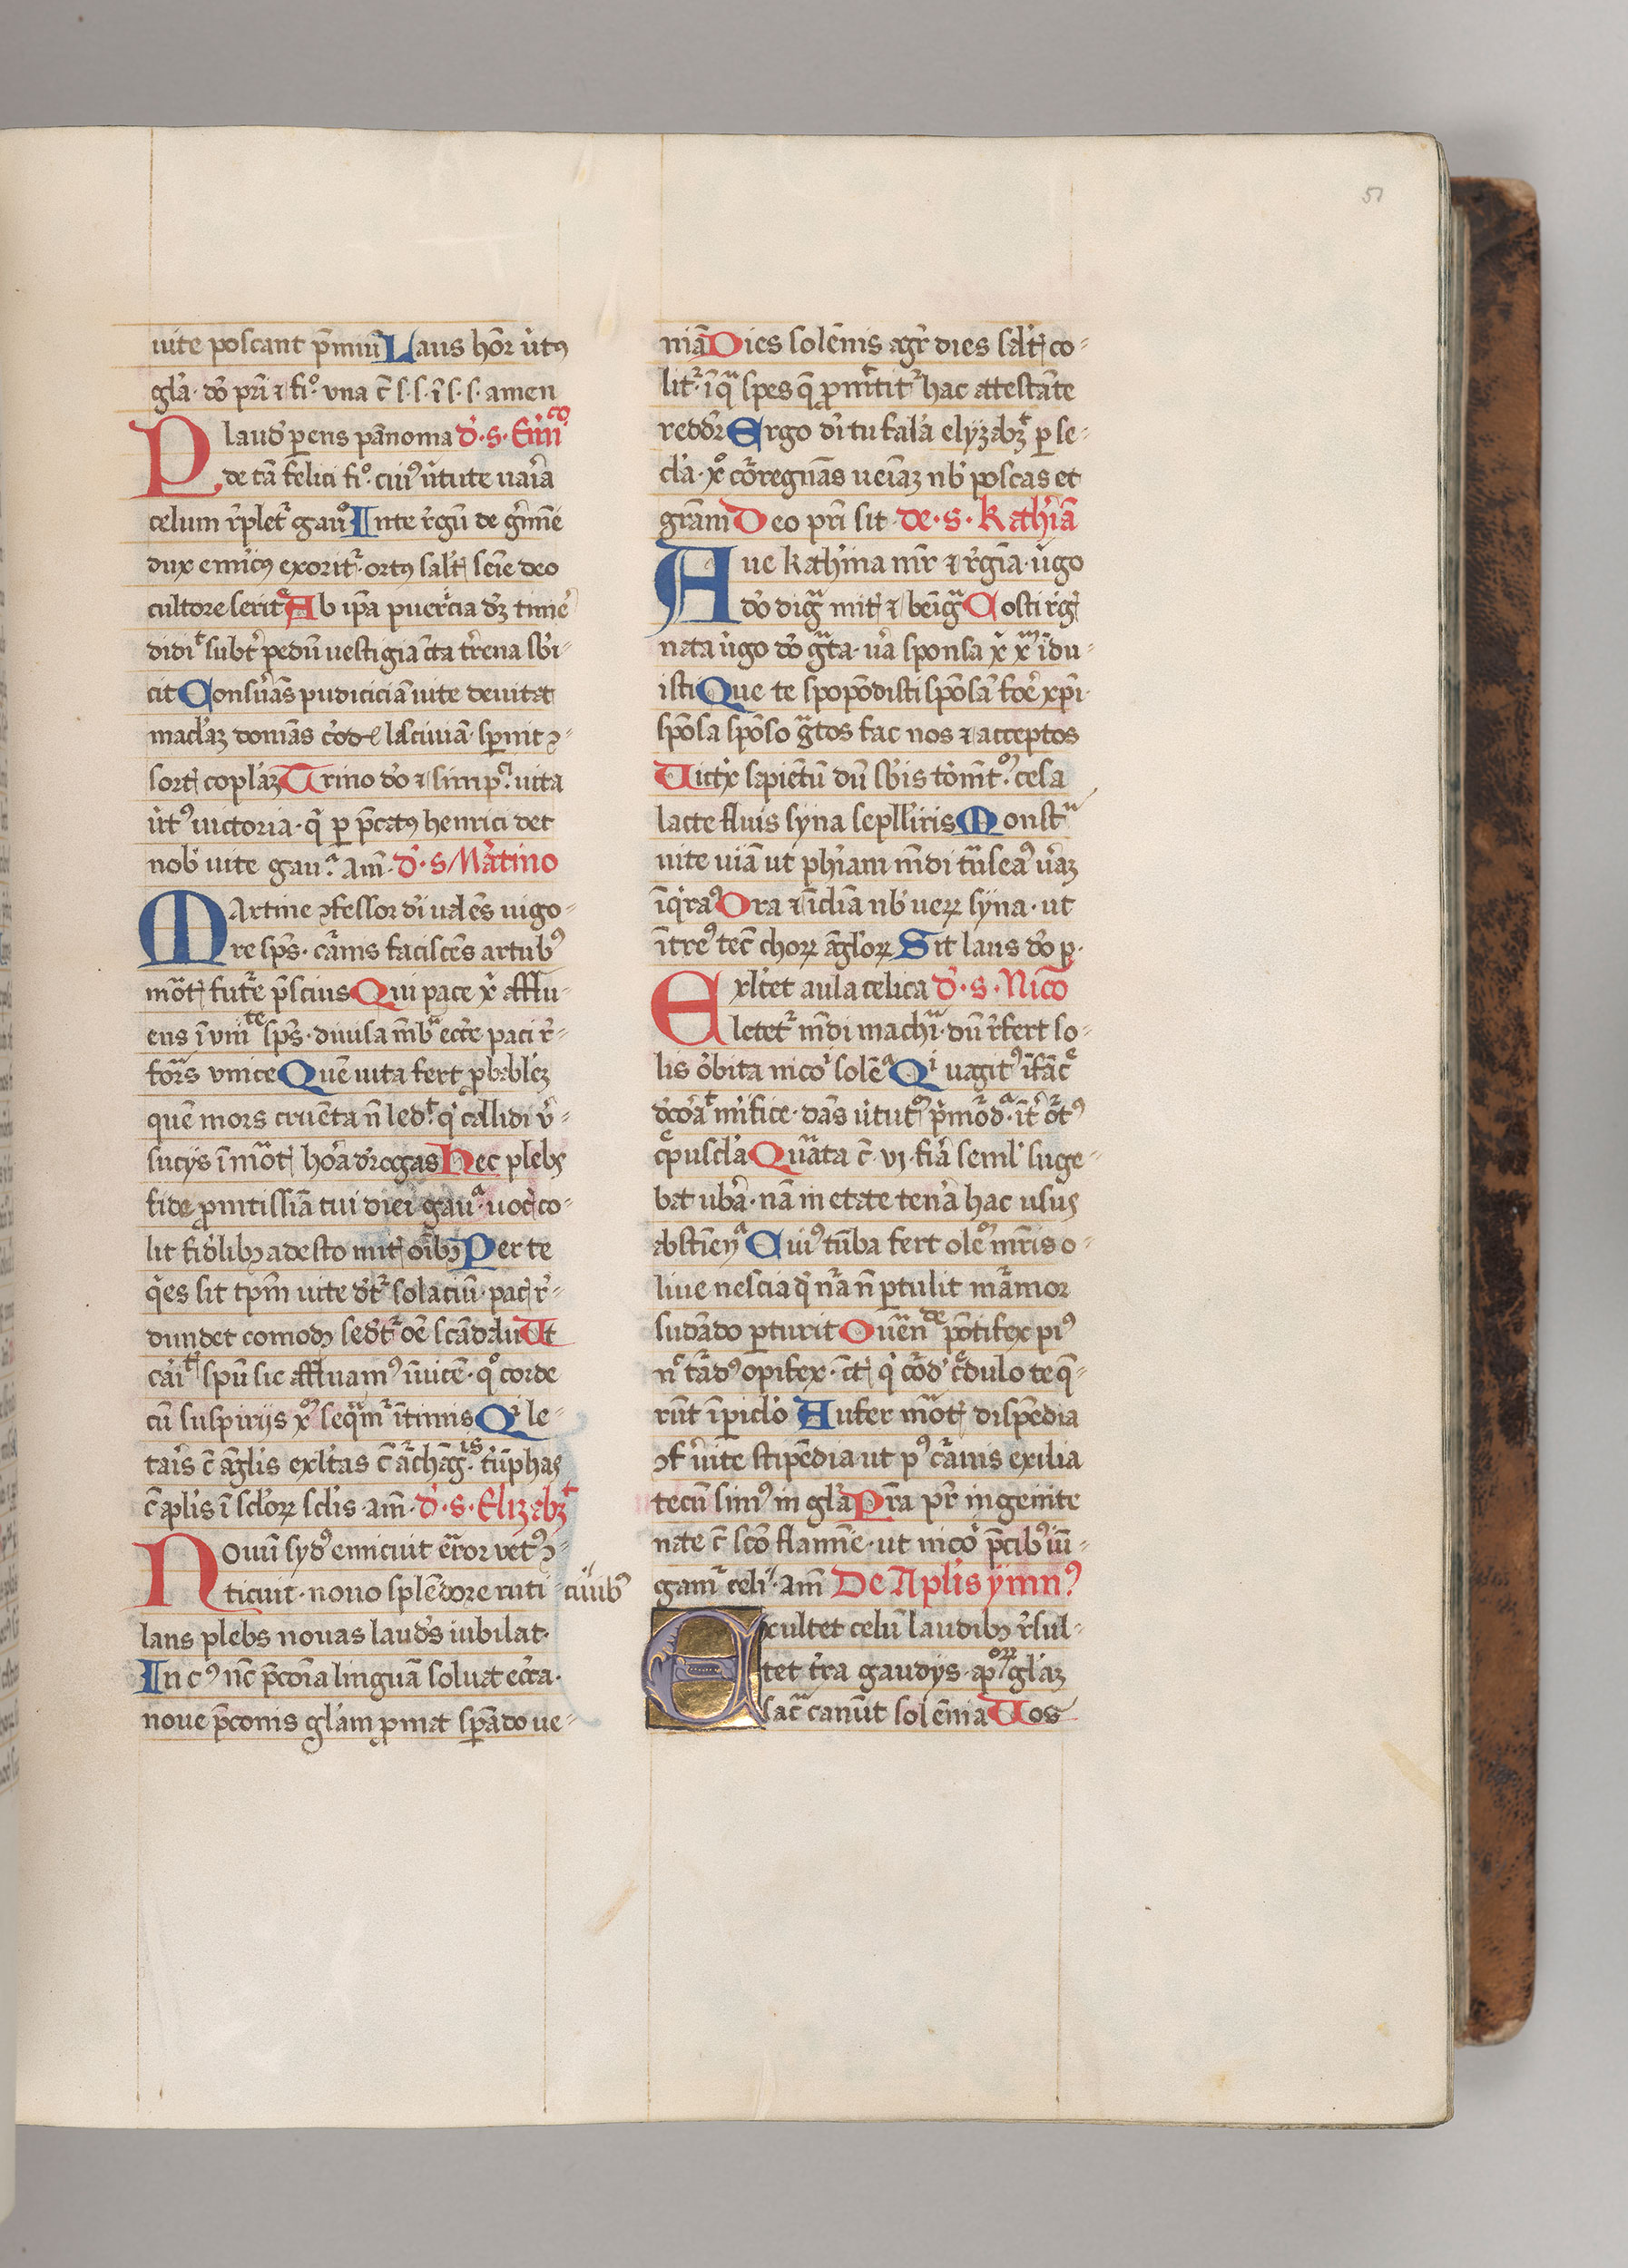 51
uite poscant p̄miū Laus hōr ůtꝰ
gl̓a · dō pri ⁊ fi͛o · vna c̄ s · s · ī s · s · amen
Plaud̓ parens pānonia d̓ · s · Emico
de tā felici fi͛o · cuiꝰ ůtute uaria
celum r̓pletr gau͛o In te r̓gū de ḡmīe
dux emicꝰ exoritr · ortꝰ salꝰ scīe deo
cultore serite Ab ipa puericia dꝫ timē
didit subtꝰ pedū uestigia cta t̓rena sb̓i-
cit Consuās pudiciciā uite deuitat
maclaꝫ domās lasciuiā · spernit
sort coplaꝫ Trino dō ⁊ simpͣ · uita
ůtꝰ uictoria · q̓ p p̄catꝰ henrici det
nob̓ uite gauͣ · am̄ · d̓ · s Mar̓tino
Martine ꝯfessor d̓i ualēs uigo-
re sp̄s · car̄nis faciscēs artubꝰ
mōt fut̓e p̄scius Qui pace xi afflu-
ens ī vnite sp̄s · diuisa mb̄a ecc̄e paci r̓-
form̄s vnice Quē uita fert pbabl̓eꝫ
quē mors cruēta n̄ ledt · q̓ callidi v̓-
sucijs ī mōt hōra d̓rogas Hec plebs
fide pmtissiā tui diei gauͣ · uocͥ co-
lit fid̓libꝫ adesto mit̓ oībꝫ Per te
q̓es sit tpm uite d̓tr solaciū · pacͥ r̓-
dundet comodꝫ sed̓tr oē scādalu Ut
car̓itͥ spū sic affluamꝰ īuicē · qͦ corde
cū suspirijs xͦ seqͣmr ītimis Qi le-
taris c̄ āglis exl̓tas c̄ ar̄chāgis · triūphas
c̄ aplis ī sclor̄ sclis · am̄ · d̓ · s · Elizabꝫt
Nouū sydꝰ emicuit er̄or vetꝰ ꝯ-
ticuit · nouo splēdore ruti-
ciuibꝰ
lans plebs nouas laud̓s iubilat ·
In cꝰ nc̄ p̄conia linguā soluat ecca ·
noue p̄conis gl̓am pmat sperādo ue-
niā Dies solēnis agr̓ dies salt̓ co-
litr · ī qͣ spes q̄ pmītitr hac attestāte
reddr Ergo d̓i tu fal̓a elyzabꝫt p se-
cl̓a · xͦ cōregnās ueiāꝫ nb̓ poscas et
grām Deo pri sit · de · s · kathͥiā
Aue kathͥina mr̄ ⁊ r̓gīa · ůgo
dō digͣ mit̓ ⁊ beīgͣ Costi r̓g
nata ůgo dō gͣta · ua sponsa xͥ xm īdu-
isti Que te spopōdisti spōsā foē xp̄i
spōsa spōso gͣtos fac nos ⁊ acceptos
Uictͥx sapiētū dū sb̓is tōmt · cesa
lacte fluis syna sepll̓iris Monstͣ
uite uiā ut phͥiam mūdi tīisseaꝰ uāꝫ
īq̓raꝰ Ora ⁊ īcliā nb̓ uerꝝ syna · ut
ītreꝰ tec̄ chorꝝ āglorꝝ Sit laus dō p ·
Exl̓tet aula celica d̓ · s · Nico
letetr mūdi machͣi · dū r̓fert so-
lis ōbita nico̓ solēͣ Qi uagitꝰ īfāce
d̓coāt mi̓fice · dās ůtutͫ pͥmōdͣ · īt̓ ōtꝰ
cepuscl̓a Quar̄ta c̄ · vi · fiā seml̓ suge-
bat ubā · nā in etate tenā hac usus
abstiēnͣ Cuiꝰ tūba fert oleͫ mr̄is o-
liue nescia q̓ nr̄a n̄ ptulit mar̄mor
sudādo pturit Ouāndͤ pōtifex piꝰ
opifex · q̓ cor̄d̓ cedulo te q̄-
rūt ī piclo Aufer mōt dispēdia
ꝯf̓ uite stipēdia ut pꝰ car̄nis exilia
tecū simꝰ in gl̓a Pr̄a pr̄ ingenite
nate c̄ scō flamīe · ut nico̓ p̄cibꝰ iū-
gamr celiͨͥ · am̄ De Aplis ymnꝰ
Exultet celū laudibꝫ r̓sul-
tet tr̓a gaudijs · aporꝝ gl̓aꝫ
sacͣ canūt solēnia Uos